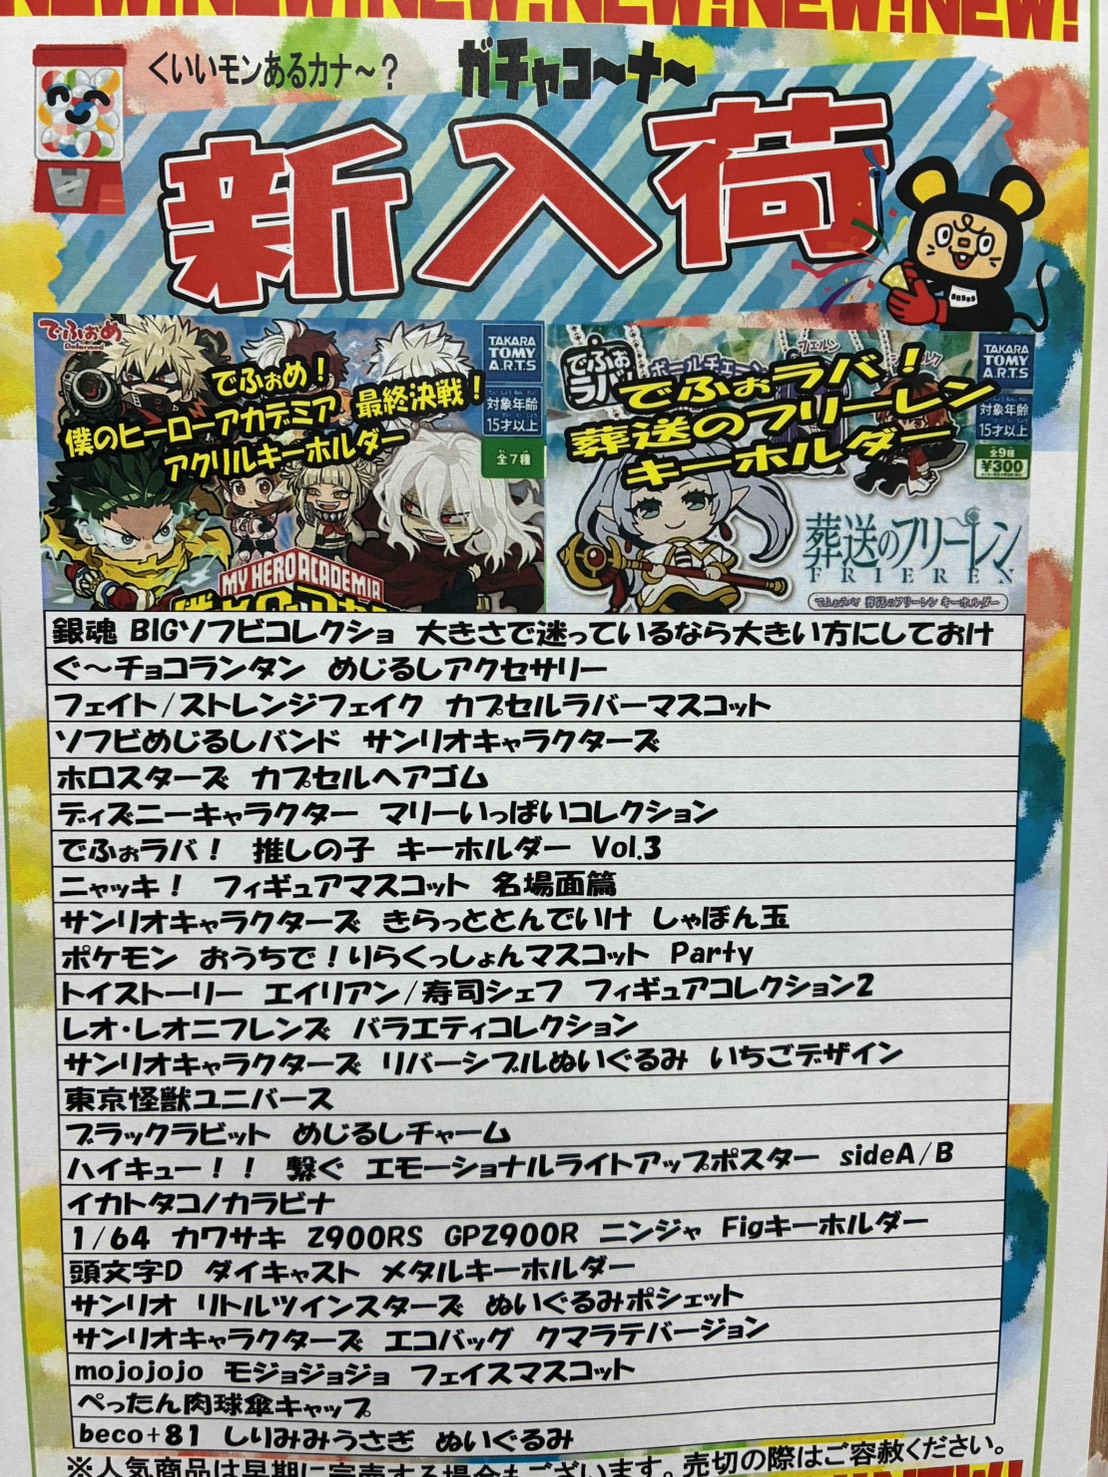 NEW!NEW!NEW!NEW!NEW!
くいいモンあるカナ～？
ガチャコ～ナ～
新入荷
でふぉめ
Deformed
でふぉめ！
僕のヒーローアカデミア 最終決戦！
アクリルキーホルダー
TAKARA
TOMY
A.R.T.S
対象年齢
15才以上
全7種
MY HERO ACADEMIA
でふぉ
ラバ!
ボールチェーン
フェルン
でふぉラバ！
葬送のフリーレン
キーホルダー
TAKARA
TOMY
A.R.T.S
対象年齢
15才以上
全9種
¥300
葬送のフリーレン
FRIEREN
でふぉラバ! 葬送のフリーレン キーホルダー
銀魂 BIGソフビコレクショ 大きさで迷っているなら大きい方にしておけ
ぐ～チョコランタン めじるしアクセサリー
フェイト/ストレンジフェイク カプセルラバーマスコット
ソフビめじるしバンド サンリオキャラクターズ
ホロスターズ カプセルヘアゴム
ディズニーキャラクター マリーいっぱいコレクション
でふぉラバ！ 推しの子 キーホルダー Vol.3
ニャッキ！ フィギュアマスコット 名場面篇
サンリオキャラクターズ きらっととんでいけ しゃぼん玉
ポケモン おうちで！りらくっしょんマスコット Party
トイストーリー エイリアン/寿司シェフ フィギュアコレクション2
レオ・レオニフレンズ バラエティコレクション
サンリオキャラクターズ リバーシブルぬいぐるみ いちごデザイン
東京怪獣ユニバース
ブラックラビット めじるしチャーム
ハイキュー！！ 繋ぐ エモーショナルライトアップポスター sideA/B
イカトタコノカラビナ
1/64 カワサキ Z900RS GPZ900R ニンジャ Figキーホルダー
頭文字D ダイキャスト メタルキーホルダー
サンリオ リトルツインスターズ ぬいぐるみポシェット
サンリオキャラクターズ エコバッグ クマラテバージョン
mojojojo モジョジョジョ フェイスマスコット
ぺったん肉球傘キャップ
beco+81 しりみみうさぎ ぬいぐるみ
※人気商品は早期に完売する場合もございます。売切の際はご容赦ください。